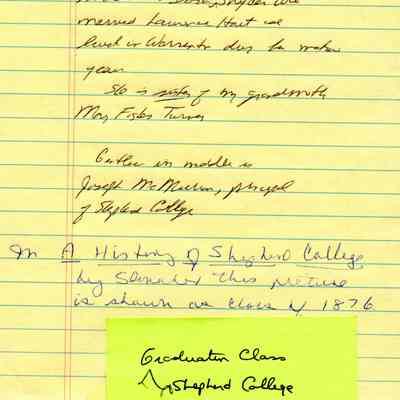 married Laurence Hart and
lived in Warrenton, for
years
She is sister of my grandmoth
Mary Turner
Gentleman in middle is
Joseph McMurran, principal
of Shepherd College
In A History of Shepherd College
by Slonaker this picture
is shown as class of 1876
Graduation Class
Shepherd College